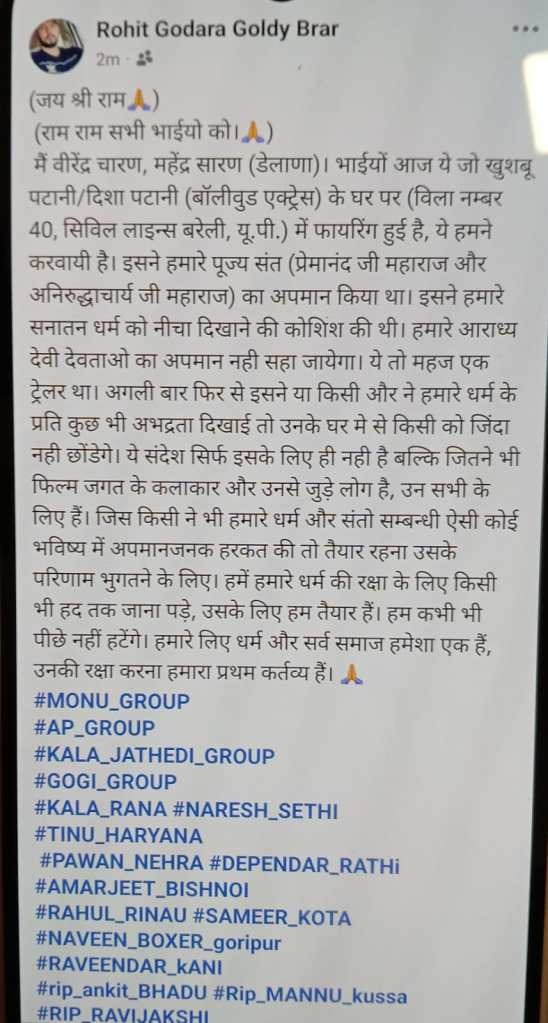 Rohit Godara Goldy Brar
2m
(जय श्री राम🙏)
(राम राम सभी भाईयो को।🙏)
मैं वीरेंद्र चारण, महेंद्र सारण (डेलाणा)। भाईयों आज ये जो खुशबू
पटानी/दिशा पटानी (बॉलीवुड एक्ट्रेस) के घर पर (विला नम्बर
40, सिविल लाइन्स बरेली, यू.पी.) में फायरिंग हुई है, ये हमने
करवायी है। इसने हमारे पूज्य संत (प्रेमानंद जी महाराज और
अनिरुद्धाचार्य जी महाराज) का अपमान किया था। इसने हमारे
सनातन धर्म को नीचा दिखाने की कोशिश की थी। हमारे आराध्य
देवी देवताओ का अपमान नही सहा जायेगा। ये तो महज एक
ट्रेलर था। अगली बार फिर से इसने या किसी और ने हमारे धर्म के
प्रति कुछ भी अभद्रता दिखाई तो उनके घर मे से किसी को जिंदा
नही छोंडेगे। ये संदेश सिर्फ इसके लिए ही नही है बल्कि जितने भी
फिल्म जगत के कलाकार और उनसे जुड़े लोग है, उन सभी के
लिए हैं। जिस किसी ने भी हमारे धर्म और संतो सम्बन्धी ऐसी कोई
भविष्य में अपमानजनक हरकत की तो तैयार रहना उसके
परिणाम भुगतने के लिए। हमें हमारे धर्म की रक्षा के लिए किसी
भी हद तक जाना पड़े, उसके लिए हम तैयार हैं। हम कभी भी
पीछे नहीं हटेंगे। हमारे लिए धर्म और सर्व समाज हमेशा एक हैं,
उनकी रक्षा करना हमारा प्रथम कर्तव्य हैं। 🙏
#MONU_GROUP
#AP_GROUP
#KALA_JATHEDI_GROUP
#GOGI_GROUP
#KALA_RANA #NARESH_SETHI
#TINU_HARYANA
#PAWAN_NEHRA #DEPENDAR_RATHi
#AMARJEET_BISHNOI
#RAHUL_RINAU #SAMEER_KOTA
#NAVEEN_BOXER_goripur
#RAVEENDAR_kANI
#rip_ankit_BHADU #Rip_MANNU_kussa
#RIP_RAVIJAKSHI